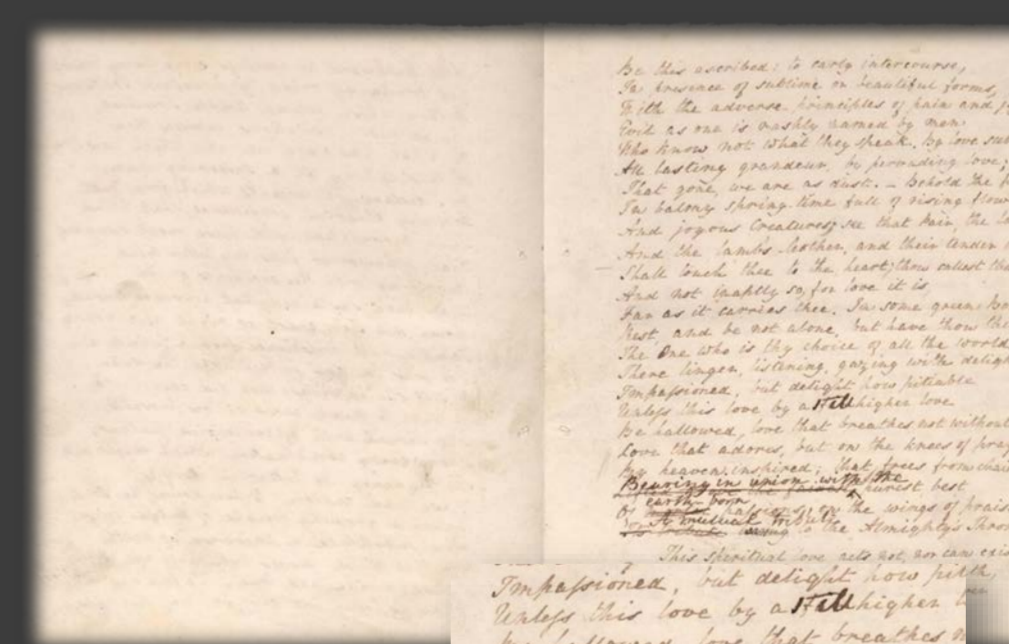 Be this ascribed; to early intercourse,
In presence of sublime or beautiful forms,
With the adverse principles of pain and j
Evil as one is rashly named by men
Who know not what they speak. By love su
All lasting grandeur, by pervading love;
That gone, we are as dust. – Behold the f
In balmy spring-time full of rising flow
And joyous Creatures; see that Pair, the la
And the lamb's Mother, and their tender
Shall touch thee to the heart; thou callest th
And not inaptly so, for love it is,
Far as it carries thee. In some green Bo
Rest, and be not alone, but have thou the
The One who is thy choice of all the world
There linger, listening, gazing with deligh
Impassioned, but delight how pitiable
Unless this love by a still higher love
Be hallowed, love that breathes not without
Love that adores, but on the knees of pray
By heaven inspired; that frees from chai
Bearing in union with the purest best
Of earth-born passions, on the wings of prais
A mutual tribute to the Almighty's Thro
This spiritual love acts not, nor can exis
Impassioned, but delight how piti
Unless this love by a still higher l
Be hallowed, love that breathes n